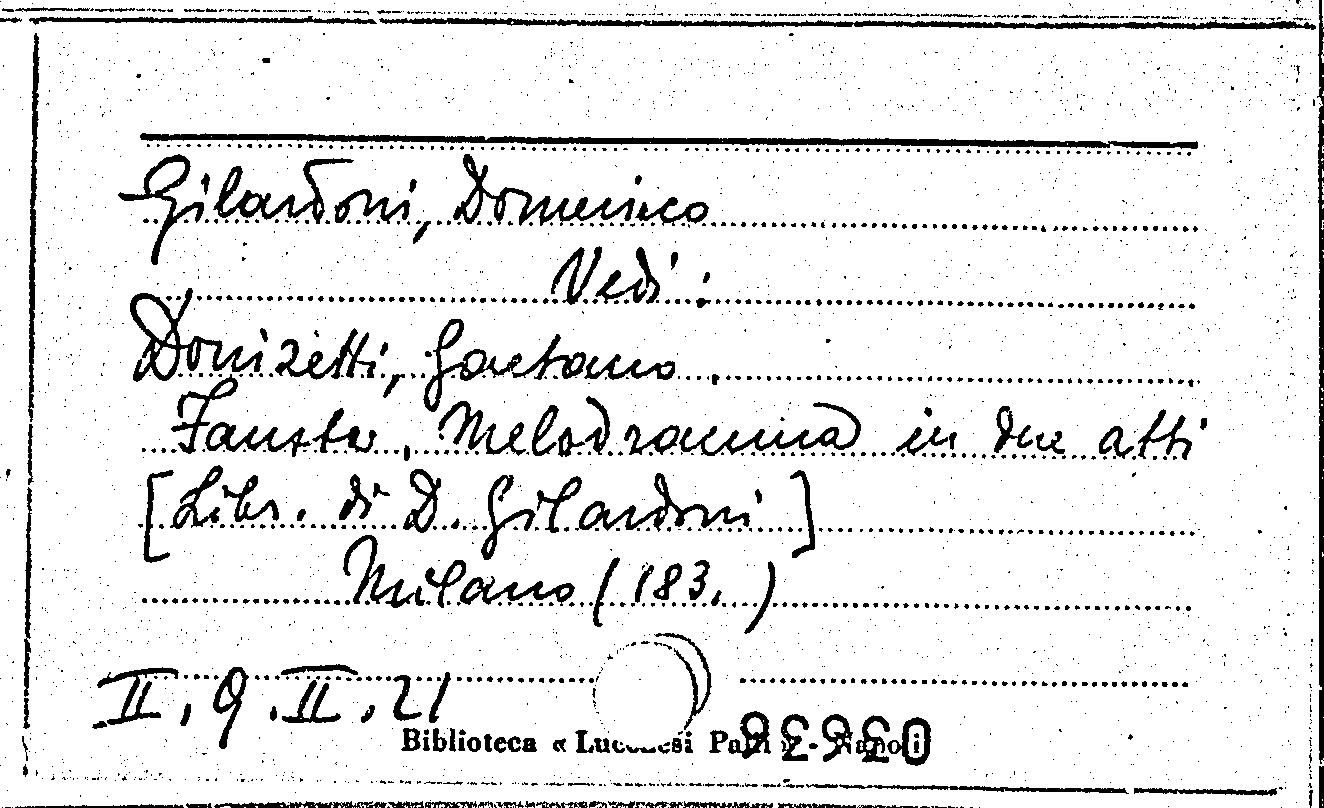 Gilardoni, Domenico
Vedi:
Donizetti, Gaetano.
Fausta. Melodramma in due atti
[Libr. di D. Gilardoni]
Milano (183.)
II. 9. II. 21
Biblioteca « Lucchesi Palli » - Napoli